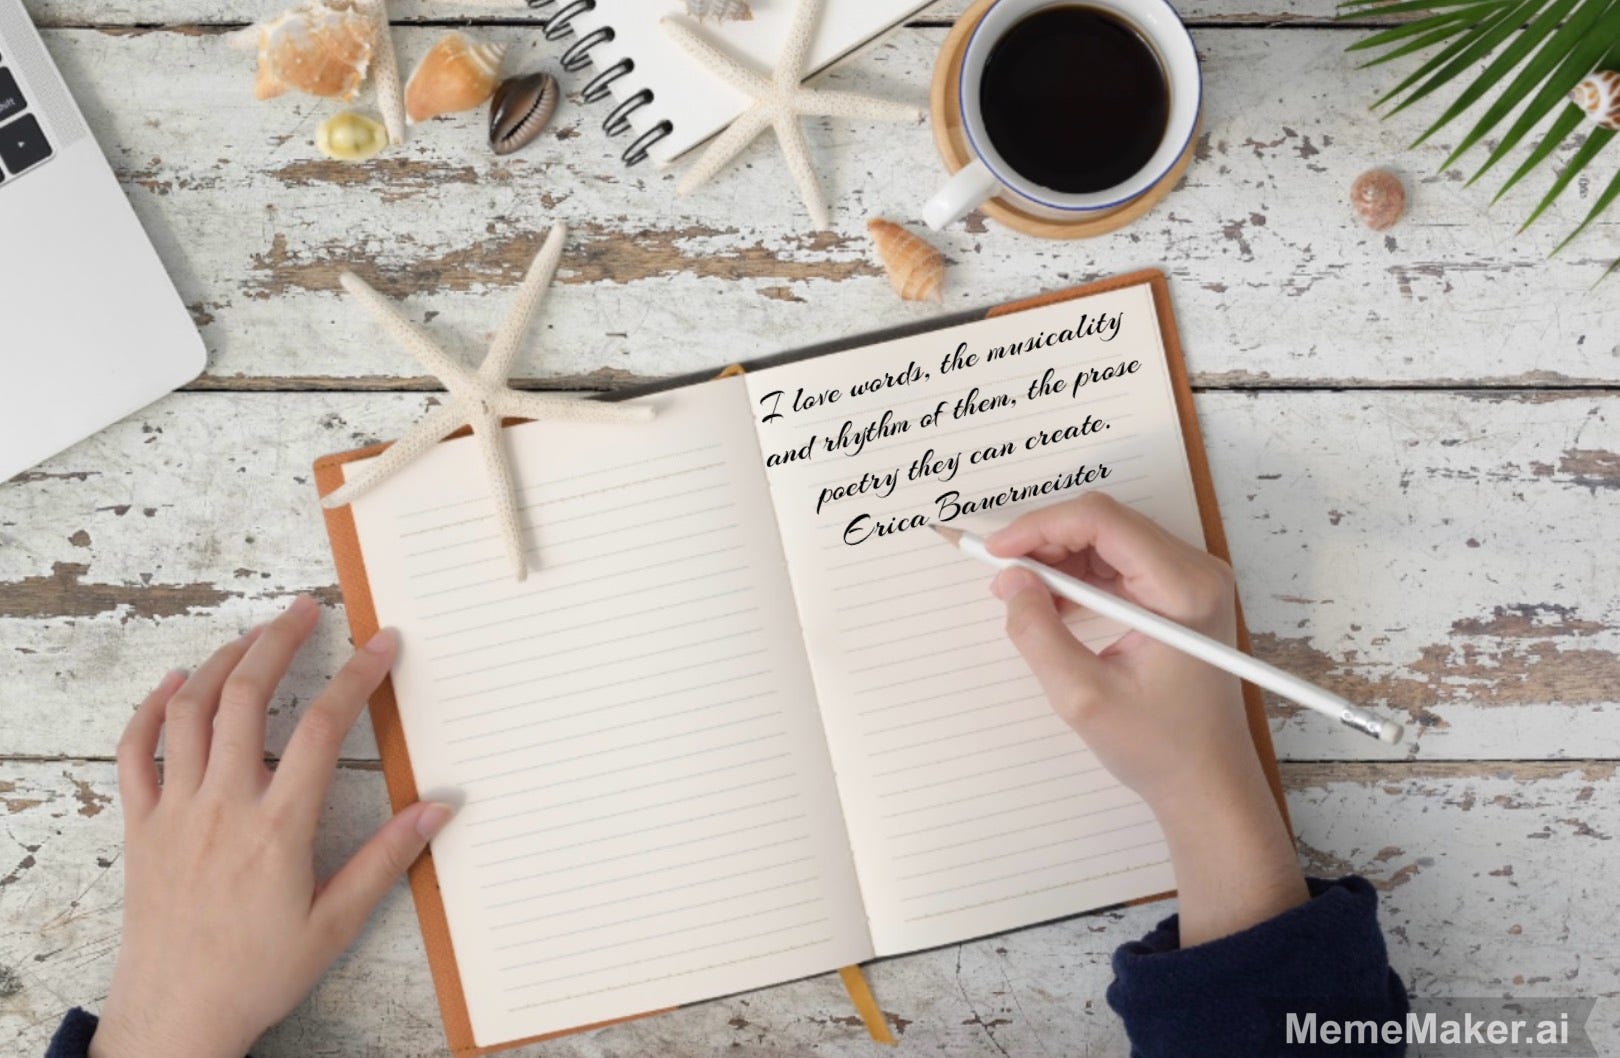 shift
I love words, the musicality
and rhythm of them, the prose
poetry they can create.
Erica Bauermeister
MemeMaker.ai